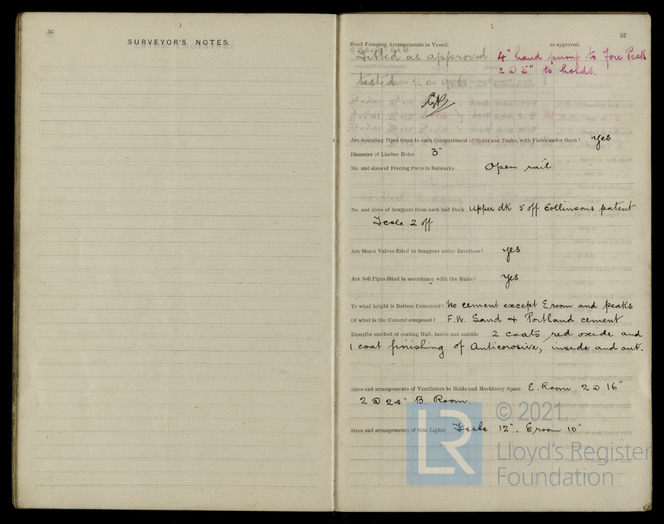 56
SURVEYOR'S NOTES.
57
Hand Pumping Arrangements in Vessel. as approved.
Fitted as approved 4" hand pump to Fore Peak
2 @ 5" to holds.
tested
Are Sounding Pipes fitted to each Compartment of Holds and Tanks, with Plates under them? Yes
Diameter of Limber Holes 3"
No. and sizes of Freeing Ports in Bulwarks Open rail
No. and sizes of Scuppers from each laid Deck Upper dk 5 off Collinsons patent
Fcsle 2 off
Are Storm Valves fitted to Scuppers under Erections? Yes
Are Soil Pipes fitted in accordance with the Rules? Yes
To what height is Bottom Cemented? No cement except E room and peaks
Of what is the Cement composed? F.W. Sand + Portland cement
Describe method of coating Hull, inside and outside 2 coats red oxide and
1 coat finishing of Anticorosive, inside and out.
Sizes and arrangements of Ventilators to Holds and Machinery Space E. Room 2 @ 16"
2 @ 24" B Room
Sizes and arrangements of Side Lights Fcsle 12". E room 10"
© 2021
LR
Lloyd's Register
Foundation